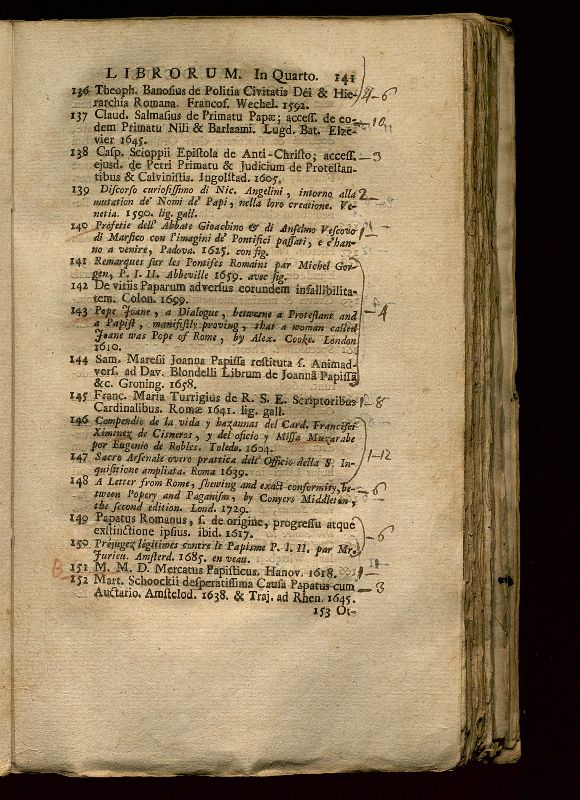 LIBRORUM. In Quarto. 141
136 Theoph. Banosius de Politia Civitatis Dei & Hie-
rarchia Romana. Francof. Wechel. 1592.
137 Claud. Salmasius de Primatu Papæ; access. de eo-
dem Primatu Nili & Barlaami. Lugd. Bat. Elze-
vier 1645.
138 Casp. Scioppii Epistola de Anti-Christo; access.
ejusd. de Petri Primatu & Judicium de Protestan-
tibus & Calvinistis. Ingolstad. 1605.
139 Discorso curiosissimo di Nic. Angelini, intorno alla
mutation de' Nomi de' Papi, nella loro creatione. Ve-
netia. 1590. lig. gall.
140 Profetie dell' Abbate Gioachino & di Anselmo Vescovo
di Marsico con l'imagini de' Pontefici passati, e c'han-
no a venire, Padova. 1625. con fig.
141 Remarques sur les Pontifes Romains par Michel Gor-
gen, P. I. II. Abbeville 1659. avec fig.
142 De vitiis Paparum adversus eorundem infallibilita-
tem. Colon. 1699.
143 Pepe Joane, a Dialogue, betweene a Protestant and
a Papist, manifistly proving, that a woman called
Joane was Pope of Rome, by Alex. Cooke. London
1610.
144 Sam. Maresii Joanna Papissa restituta s. Animad-
vers. ad Dav. Blondelli Librum de Joannâ Papissâ
&c. Groning. 1658.
145 Franc. Maria Turrigius de R. S. E. Scriptoribus
Cardinalibus. Romæ 1641. lig. gall.
146 Compendio de la vida y hazannas del Card. Francisci
Ximenez de Cisneros, y del oficio y Missa Muzarabe
por Eugenio de Robles. Toledo. 1604.
147 Sacro Arsenale overo prattica dell' Officio della S. In-
quisitione ampliata. Roma 1639.
148 A Letter from Rome, shewing and exact conformity, be-
tween Popery and Paganism, by Conyers Middleton,
the second edition. Lond. 1729.
149 Papatus Romanus, s. de origine, progressu atque
exstinctione ipsius. ibid. 1617.
150 Préjugez légitimes contre le Papisme P. I. II. par Mr.
Jurieu. Amsterd. 1685. en veau.
151 M. M. D. Mercatus Papisticus. Hanov. 1618.
152 Mart. Schoockii desperatissima Causa Papatus cum
Auctario. Amstelod. 1638. & Traj. ad Rhen. 1645.
153 Ot-
4-6
10
3
2-
1-
4
1-8
1-12
6
6
3
B